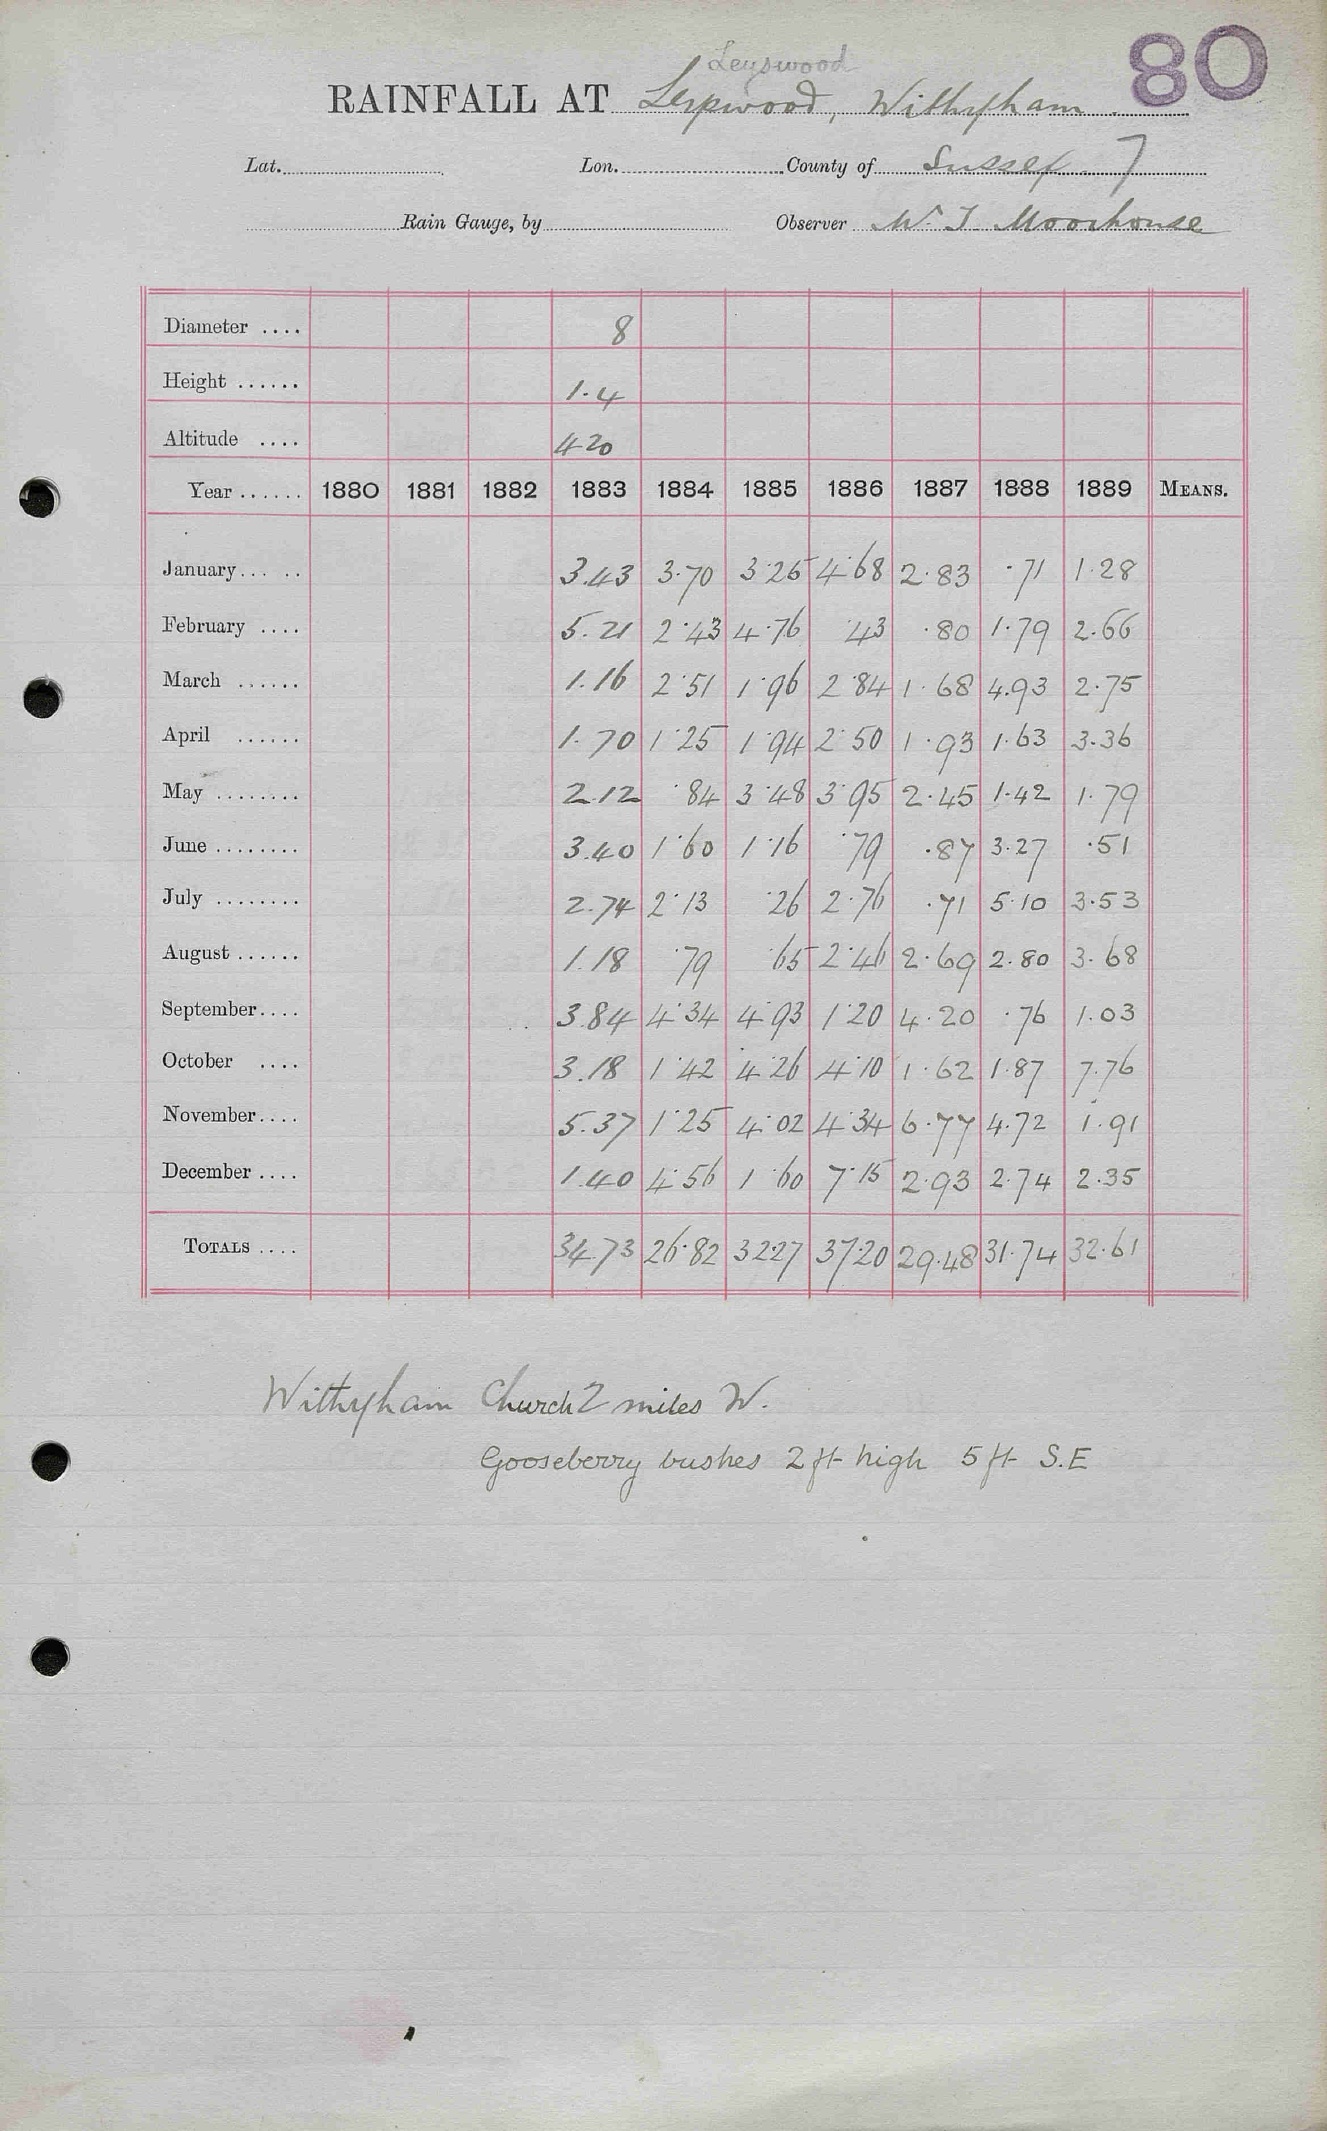 80
Leyswood
RAINFALL AT Leyswood, Withyham
Lat. Lon. County of Sussex. 7
Rain Gauge, by Observer W. J. Moorhouse
Diameter .... 8
Height ...... 1.4
Altitude .... 420
Year ...... 1880 1881 1882 1883 1884 1885 1886 1887 1888 1889 MEANS.
January... .. 3.43 3.70 3.25 4.68 2.83 .71 1.28
February .... 5.21 2.43 4.76 .43 .80 1.79 2.66
March ...... 1.16 2.51 1.96 2.84 1.68 4.93 2.75
April ...... 1.70 1.25 1.94 2.50 1.93 1.63 3.36
May ........ 2.12 .84 3.48 3.95 2.45 1.42 1.79
June ........ 3.40 1.60 1.16 .79 .87 3.27 .51
July ........ 2.74 2.13 .26 2.76 .71 5.10 3.53
August ...... 1.18 .79 .65 2.46 2.69 2.80 3.68
September.... 3.84 4.34 4.93 1.20 4.20 .76 1.03
October .... 3.18 1.42 4.26 4.10 1.62 1.87 7.76
November.... 5.37 1.25 4.02 4.34 6.77 4.72 1.91
December .... 1.40 4.56 1.60 7.15 2.93 2.74 2.35
TOTALS .... 34.73 26.82 32.27 37.20 29.48 31.74 32.61
Withyham Church 2 miles W.
Gooseberry bushes 2 ft high 5 ft S.E